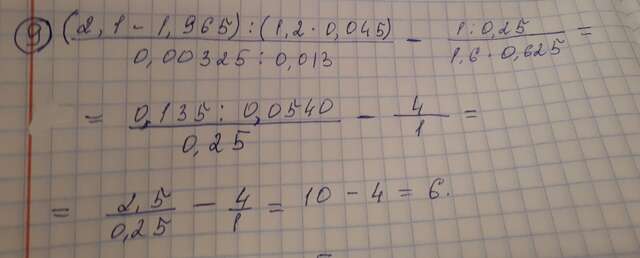 9) (2,1 - 1,965) : (1,2 · 0,045) / 0,00325 : 0,013 - 1 : 0,25 / 1,6 · 0,625 =
= 0,135 : 0,0540 / 0,25 - 4 / 1 =
= 2,5 / 0,25 - 4 / 1 = 10 - 4 = 6.